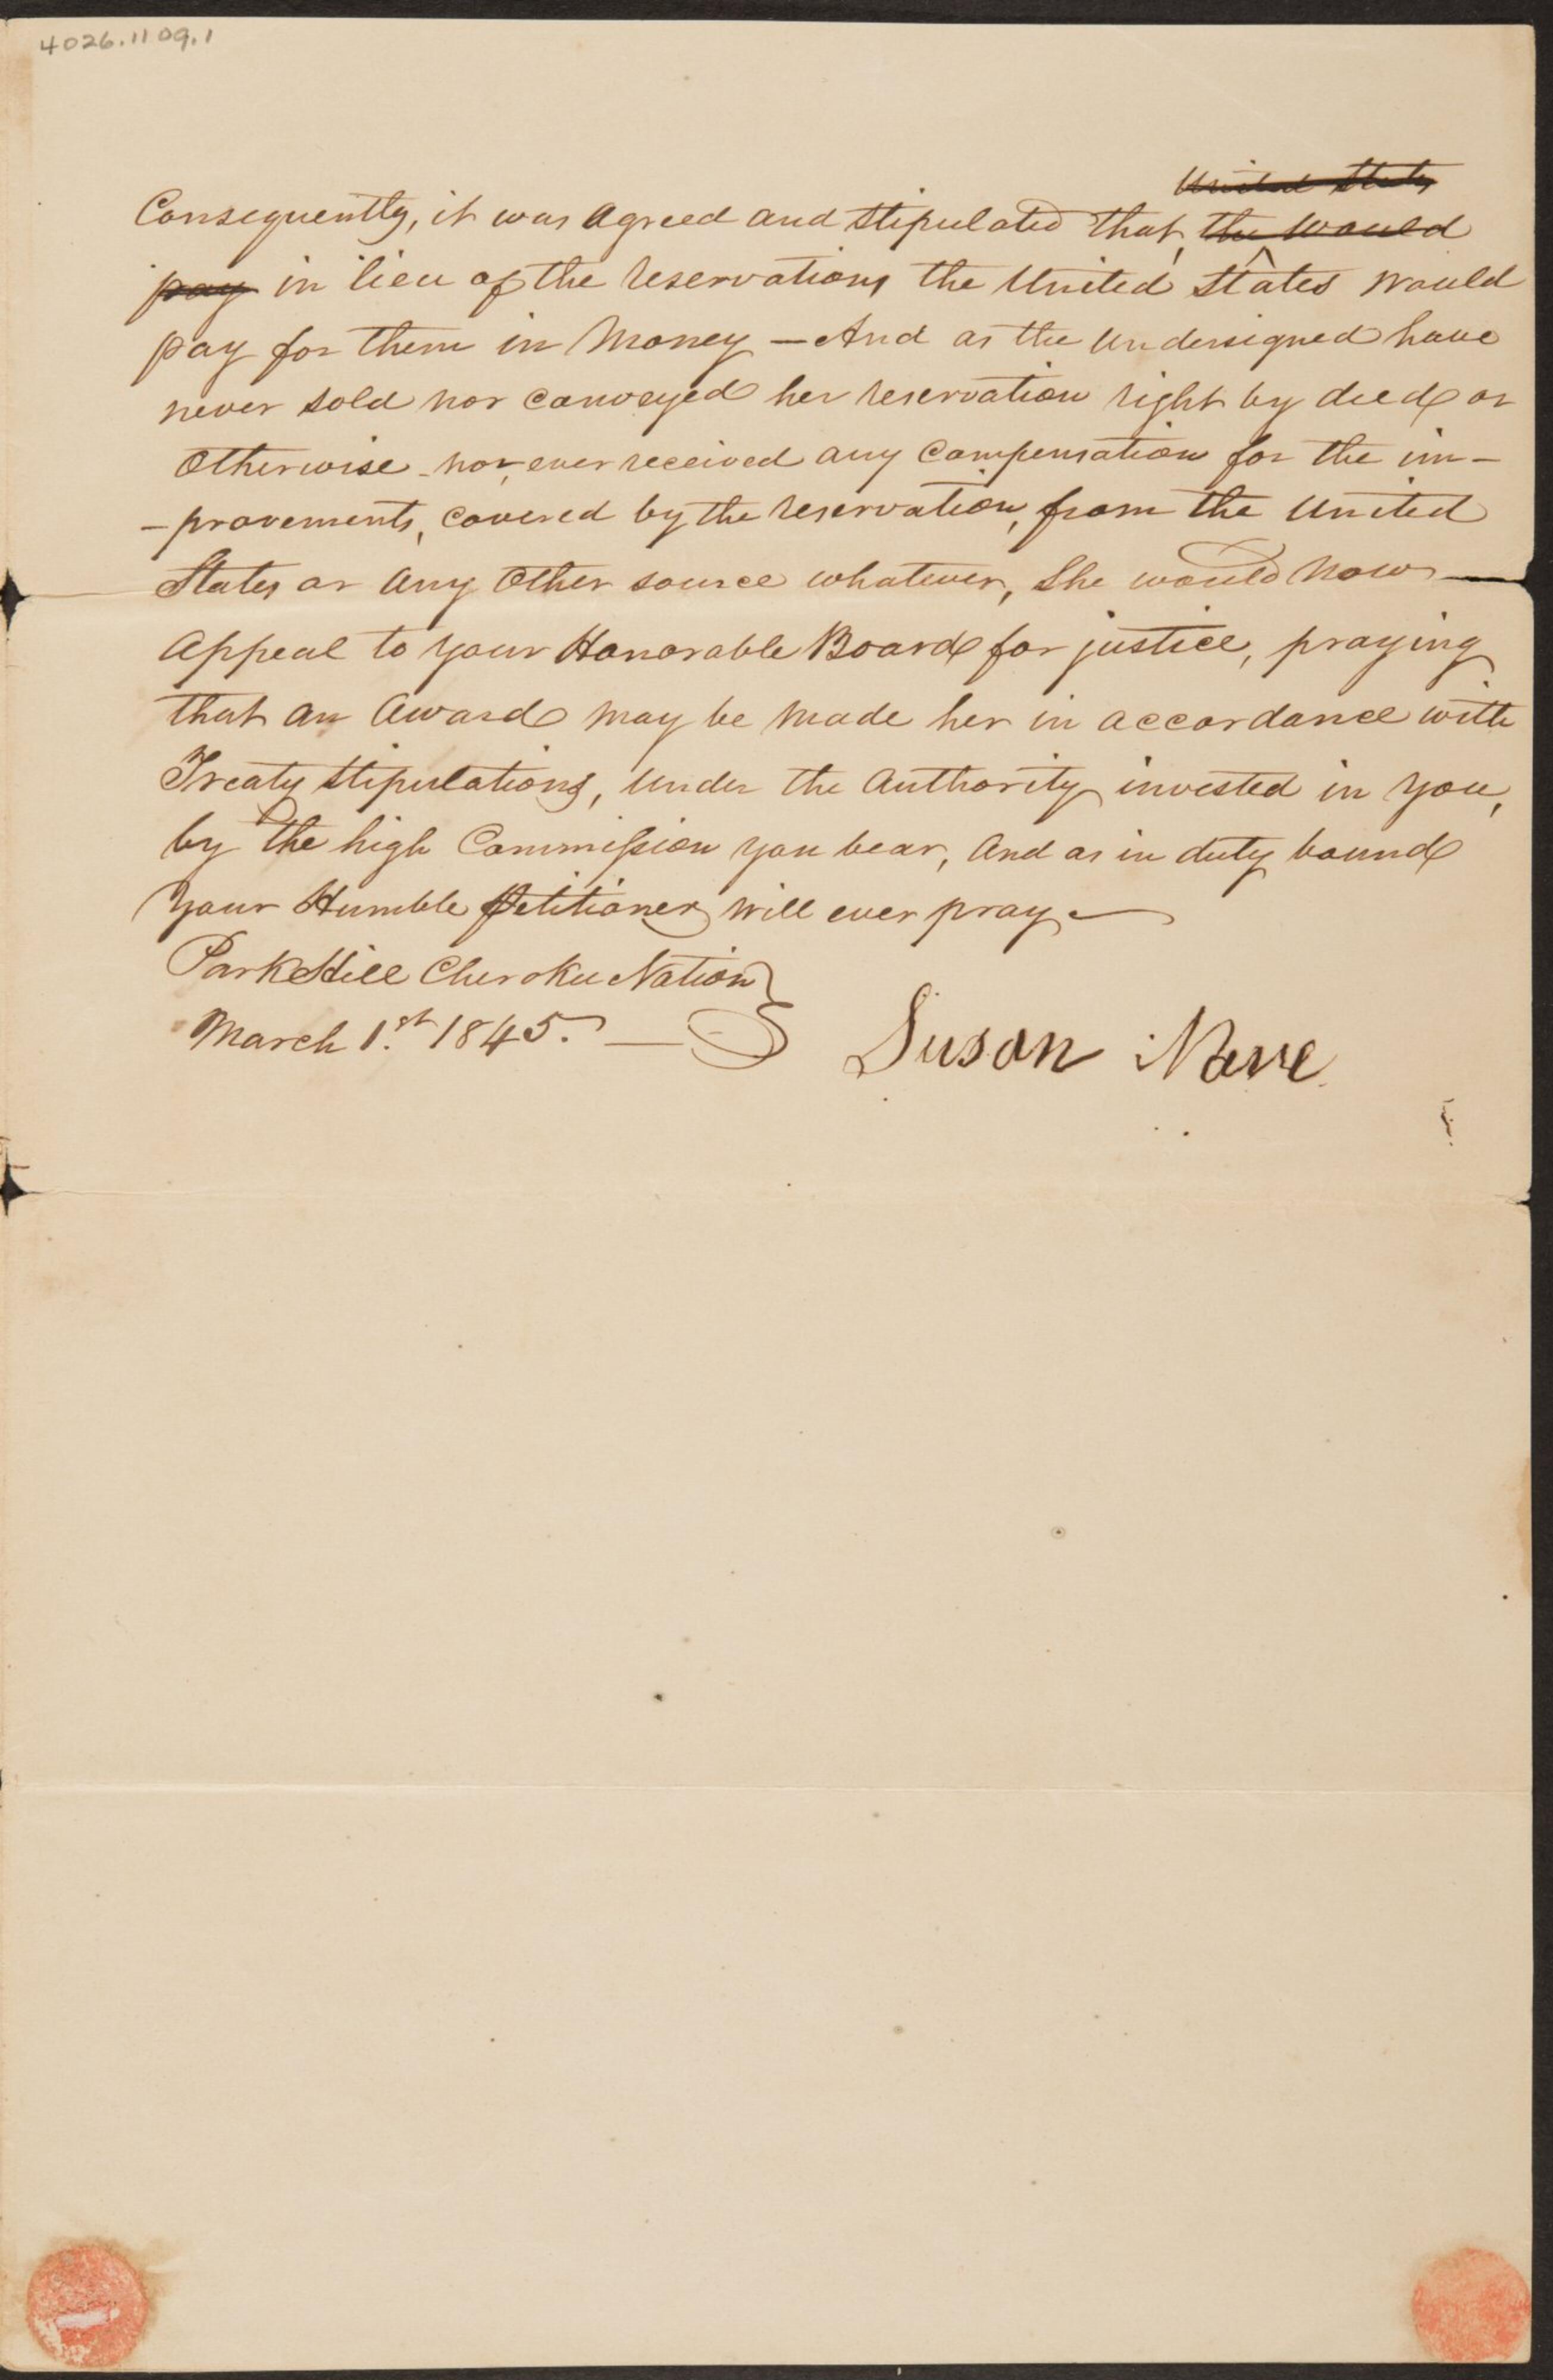 4026.1109.1
United States
Consequently, it was Agreed and stipulated that, the would
pay in lieu of the reservations the United States would
pay for them in Money — And as the Undersigned have
never sold nor conveyed her reservation right by deed or
Otherwise - nor, ever received any compensation for the im-
-provements, covered by the reservation, from the United
States or any Other source whatever, She would Now —
Appeal to your Honorable Board for justice, praying
that an Award may be made her in accordance with
Treaty stipulations, under the Authority invested in you,
by the high Commission you bear, And as in duty bound
your Humble Petitioner will ever pray —
Park Hill Cherokee Nation
March 1.st 1845. —
Susan Nave